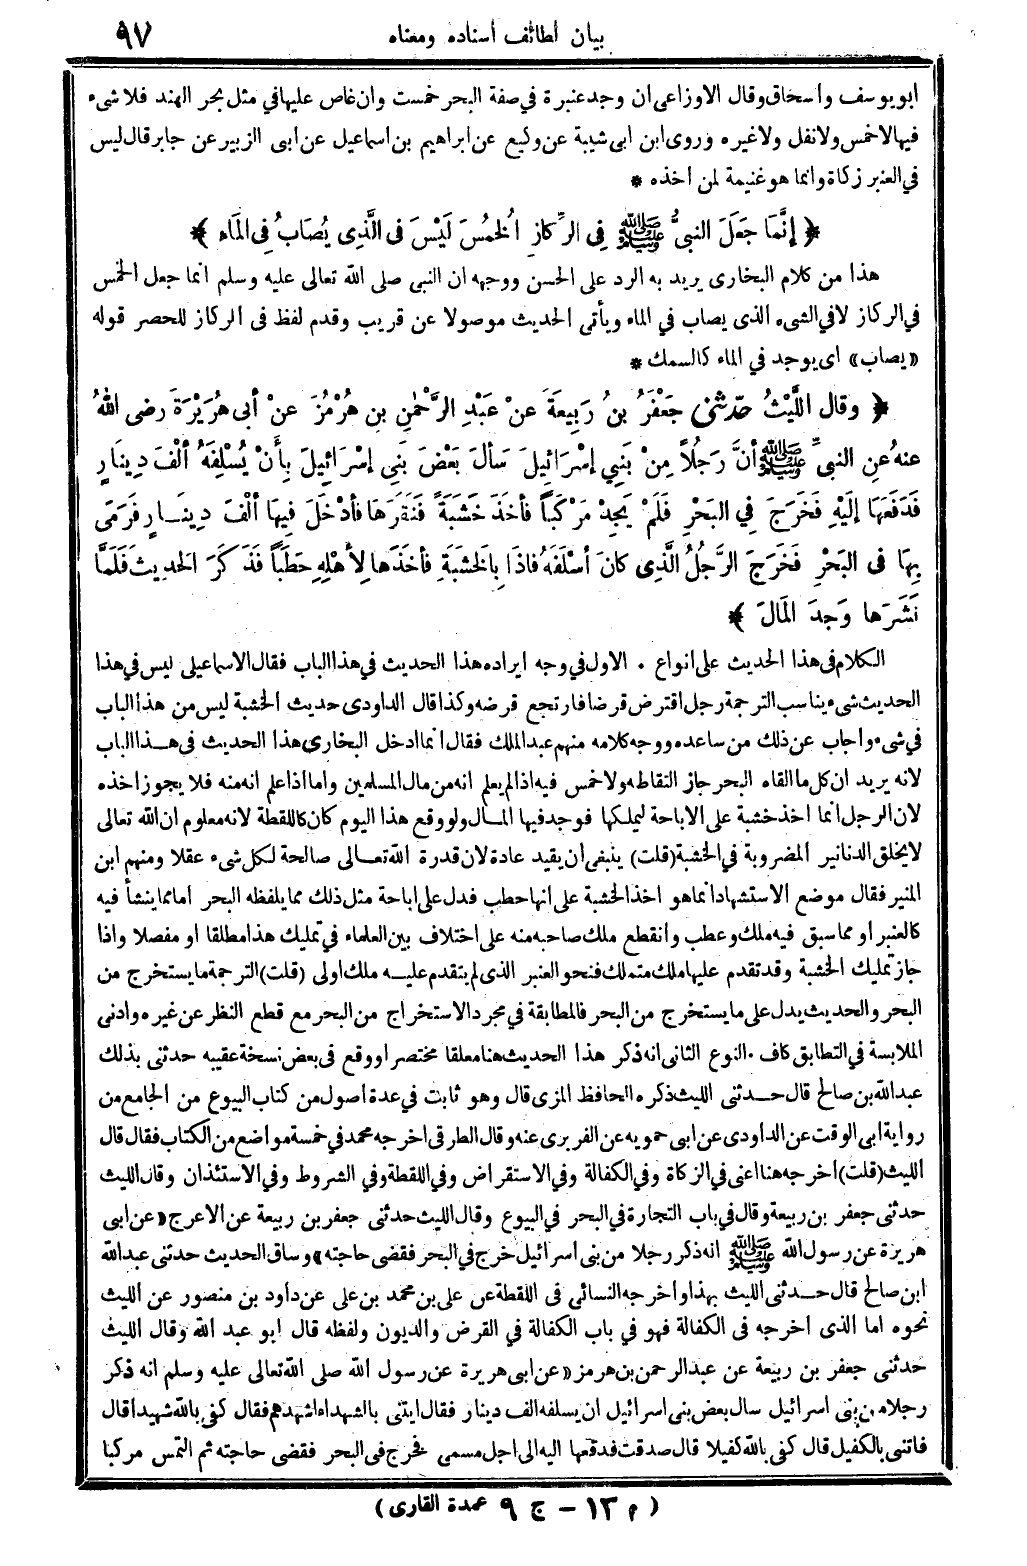 بيان لطائف أسناده ومعناه ٩٧
ابو يوسف واسحاق وقال الاوزاعى ان وجد عنبرة في صفة البحر خمست وان غاص عليها في مثل بحر الهند فلا شىء
فيها لا خمس ولا نفل ولا غيره وروى ابن ابى شيبة عن وكيع عن ابراهيم بن اسماعيل عن ابى الزبير عن جابر قال ليس
في العنبر زكاة وانما هو غنيمة لمن أخذه *
﴿ إنَّمَا جَعَلَ النبيُّ ﷺ فِي الرِّكازِ الْخُمُسَ لَيْسَ فى الَّذِى يُصَابُ فِى الْمَاءِ ﴾
هذا من كلام البخارى يريد به الرد على الحسن ووجهه ان النبى صلى الله تعالى عليه وسلم انما جعل الخمس
في الركاز لا في الشىء الذى يصاب في الماء ويأتى الحديث موصولا عن قريب وقدم لفظ فى الركاز للحصر قوله
«يصاب» اى يوجد في الماء كالسمك *
﴿ وقال اللَّيْثُ حدّثنى جَعْفَرُ بنُ رَبِيعَةَ عنْ عَبْدِ الرَّحْمٰنِ بنِ هُرْمُزَ عنْ أبى هُرَيْرَةَ رضى اللهُ
عنهُ عنِ النبيِّ ﷺ أنَّ رَجُلاً مِنْ بَنِي إسْرَائِيلَ سَألَ بَعْضَ بَنِي إسْرَائِيلَ بِأَنْ يُسْلِفَهُ ألْفَ دِينَارٍ
فَدَفَعَهَا إلَيْهِ فَخَرَجَ فِي البَحْرِ فَلَمْ يَجِدْ مَرْكَباً فأخَذَ خَشَبَةً فَنَقَرَهَا فأدْخَلَ فِيهَا ألْفَ دِينَارٍ فَرَمَى
بِهَا فى البَحْرِ فَخَرَجَ الرَّجُلُ الَّذِى كانَ أسْلَفَهُ فَاذَا بِالْخَشَبَةِ فأخَذَها لِأهْلِهِ حَطَباً فَذَكَرَ الحَدِيثَ فَلَمَّا
نَشَرَها وَجَدَ المَالَ ﴾
الكلام فى هذا الحديث على انواع . الاول في وجه ايراده هذا الحديث في هذا الباب فقال الاسماعيلى ليس في هذا
الحديث شىء يناسب الترجمة رجل اقترض قرضا فارتجع قرضه وكذا قال الداودى حديث الخشبة ليس من هذا الباب
في شىء واجاب عن ذلك من ساعده ووجه كلامه منهم عبدالملك فقال انما ادخل البخارى هذا الحديث فى هذا الباب
لانه يريد ان كل ما القاه البحر جاز التقاطه ولا خمس فيه اذا لم يعلم انه من مال المسلمين واما اذا علم انه منه فلا يجوز اخذه
لان الرجل انما اخذ خشبة على الاباحة ليملكها فوجد فيها المال ولو وقع هذا اليوم كان كاللقطة لانه معلوم ان الله تعالى
لا يخلق الدنانير المضروبة في الخشبة (قلت) ينبغى أن يقيد عادة لان قدرة الله تعالى صالحة لكل شىء عقلا ومنهم ابن
المنير فقال موضع الاستشهاد انما هو اخذ الخشبة على أنها حطب فدل على اباحة مثل ذلك مما يلفظه البحر اما مما ينشأ فيه
كالعنبر او مما سبق فيه ملك وعطب وانقطع ملك صاحبه منه على اختلاف بين العلماء في تمليك هذا مطلقا او مفصلا واذا
جاز تمليك الخشبة وقد تقدم عليها ملك متملك فنحو العنبر الذى لم يتقدم عليه ملك اولى (قلت) الترجمة ما يستخرج من
البحر والحديث يدل على ما يستخرج من البحر فالمطابقة في مجرد الاستخراج من البحر مع قطع النظر عن غيره وادنى
الملابسة في التطابق كاف . النوع الثانى انه ذكر هذا الحديث هنا معلقا مختصرا ووقع فى بعض نسخة عقيبه حدثنى بذلك
عبدالله بن صالح قال حدثنى الليث ذكره الحافظ المزى قال وهو ثابت في عدة اصول من كتاب البيوع من الجامع من
رواية ابى الوقت عن الداودى عن ابى حمويه عن الفربرى عنه وقال الطرقى اخرجه محمد في خمسة مواضع من الكتاب فقال قال
الليث (قلت) اخرجه هنا اعنى في الزكاة وفي الكفالة وفي الاستقراض وفي اللقطة وفي الشروط وفي الاستئذان وقال الليث
حدثنى جعفر بن ربيعة وقال في باب التجارة في البحر في البيوع وقال الليث حدثنى جعفر بن ربيعة عن الاعرج «عن ابى
هريرة عن رسول الله ﷺ انه ذكر رجلا من بنى اسرائيل خرج في البحر فقضى حاجته» وساق الحديث حدثنى عبدالله
ابن صالح قال حدثنى الليث بهذا واخرجه النسائى فى اللقطة عن على بن محمد بن على عن داود بن منصور عن الليث
نحوه اما الذى اخرجه فى الكفالة فهو في باب الكفالة في القرض والديون ولفظه قال ابو عبد الله وقال الليث
حدثنى جعفر بن ربيعة عن عبدالرحمن بن هرمز «عن ابى هريرة عن رسول الله صلى الله تعالى عليه وسلم انه ذكر
رجلا من بنى اسرائيل سال بعض بنى اسرائيل ان يسلفه الف دينار فقال ايتنى بالشهداء اشهدهم فقال كفى بالله شهيدا قال
فاتنى بالكفيل قال كفى بالله كفيلا قال صدقت فدفعها اليه الى اجل مسمى فخرج فى البحر فقضى حاجته ثم التمس مركبا
(م ١٣ – ج ٩ عمدة القارى)